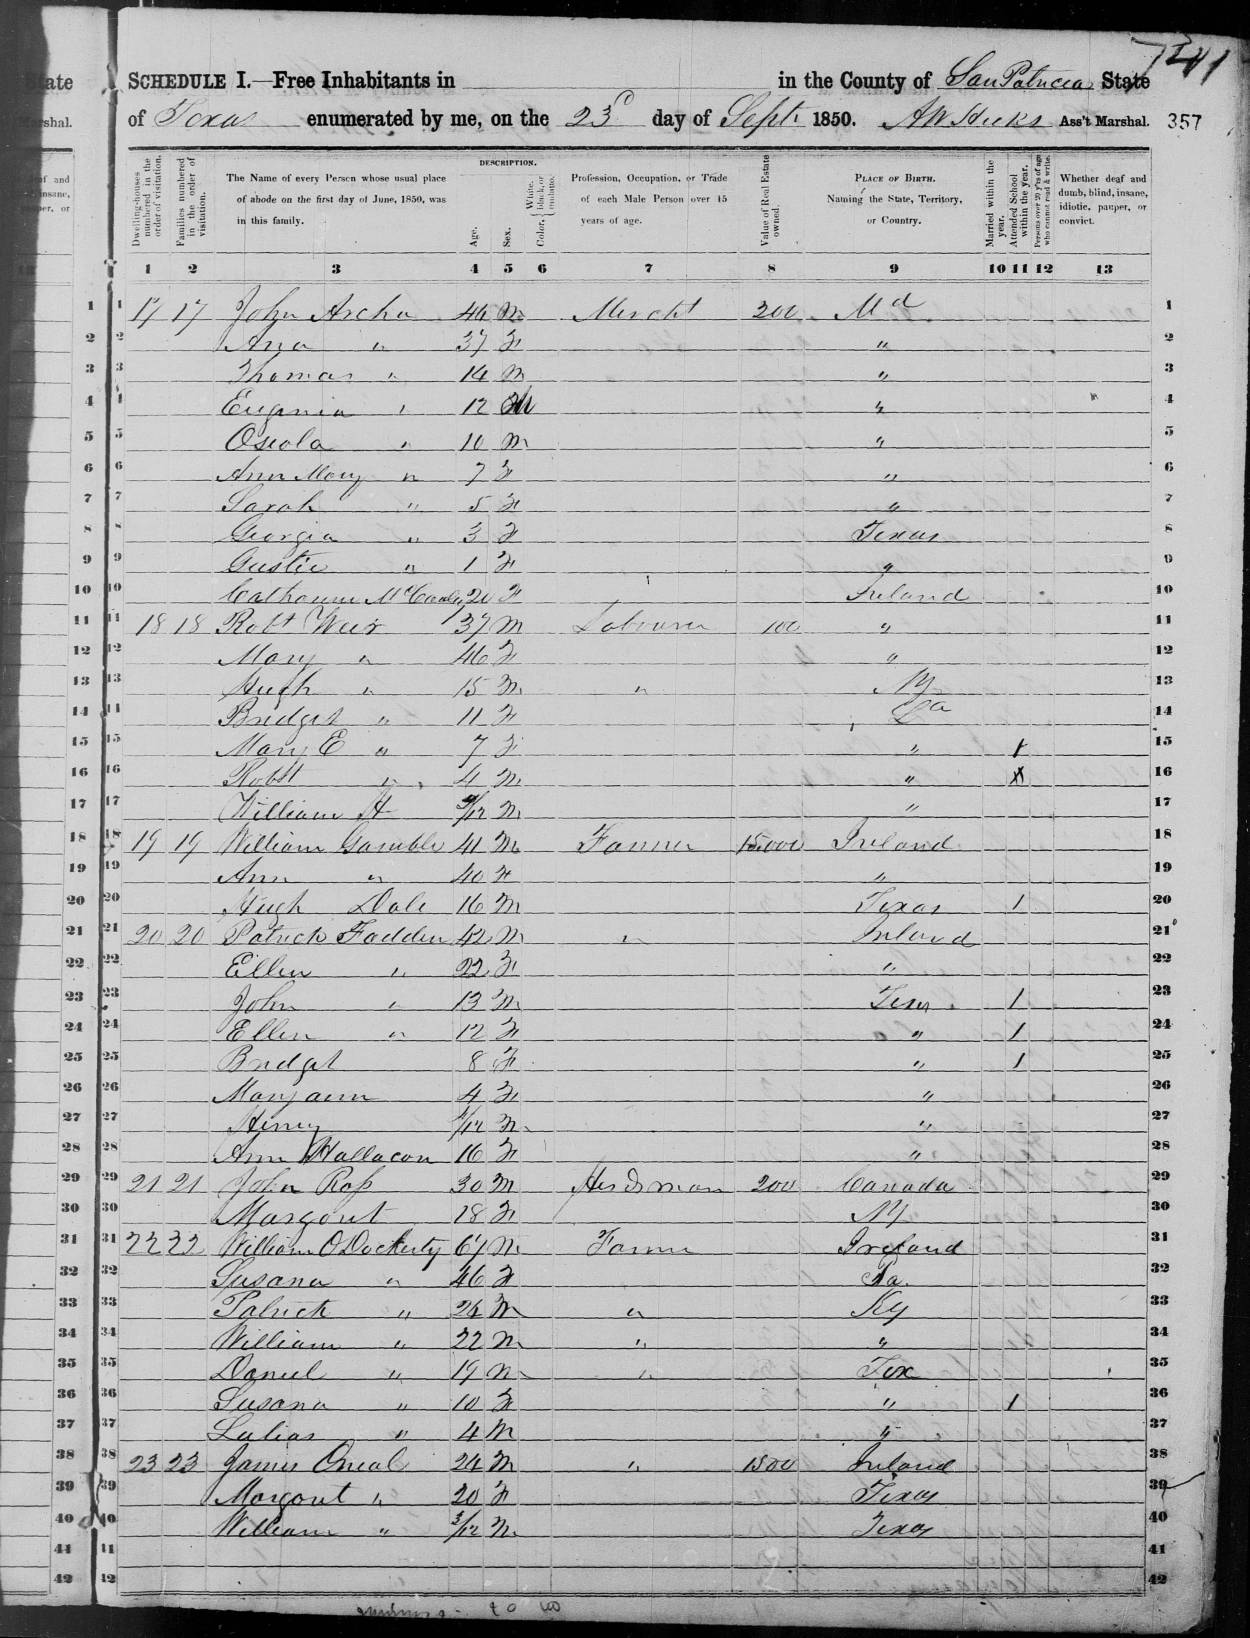 741
SCHEDULE I.—Free Inhabitants in in the County of San Patricia State
of Texas enumerated by me, on the 23d day of Sept. 1850. AW Hicks Ass't Marshal. 357
DESCRIPTION.
Dwelling-houses numbered in the order of visitation. Families numbered in the order of visitation. The Name of every Person whose usual place of abode on the first day of June, 1850, was in this family. Age. Sex. Color, White, black, or mulatto. Profession, Occupation, or Trade of each Male Person over 15 years of age. Value of Real Estate owned. PLACE OF BIRTH. Naming the State, Territory, or Country. Married within the year. Attended School within the year. Persons over 20 y'rs of age who cannot read & write. Whether deaf and dumb, blind, insane, idiotic, pauper, or convict.
1 2 3 4 5 6 7 8 9 10 11 12 13
1 17 17 John Archer 44 M Mercht 300 Md 1
2 Ann " 37 F " 2
3 Thomas " 14 M " 3
4 Eugenia " 12 M " 4
5 Oseola " 10 M " 5
6 Ann Mary " 7 F " 6
7 Sarah " 5 F " 7
8 Georgia " 3 F Texas 8
9 Gustie " 1 F " 9
10 Catharine 20 F Ireland 10
11 18 18 Robt Weir 37 M Labourer 100 " 11
12 Mary " 46 F " 12
13 Hugh " 15 M " NY 13
14 Bridget " 11 F La 14
15 Mary E " 7 F " 1 15
16 Robt " 4 M " 16
17 William H 9/12 M " 17
18 19 19 William Gamble 41 M Farmer 15,000 Ireland 18
19 Ann " 40 F " 19
20 Hugh Dale 16 M Texas 1 20
21 20 20 Patrick Fadden 42 M " Ireland 21
22 Ellen " 22 F " 22
23 John " 13 M Texas 1 23
24 Ellen " 12 F " 1 24
25 Bridget 8 F " 1 25
26 Maryann 4 F " 26
27 Henry /12 M " 27
28 Ann Hallacon 16 F " 28
29 21 21 John Ross 30 M Herdsman 200 Canada 29
30 Margout 18 F NY 30
31 22 22 William O Dockerty 67 M Farmer Ireland 31
32 Susana " 46 F Pa. 32
33 Patrick " 24 M " Ky 33
34 William " 22 M " " 34
35 Daniel " 19 M " Tex 35
36 Susana " 10 F " 1 36
37 " 4 M " 37
38 23 23 James Oneal 24 M " 1500 Ireland 38
39 Margout " 20 F Texas 39
40 William " 3/12 M Texas 40
41 41
42 42